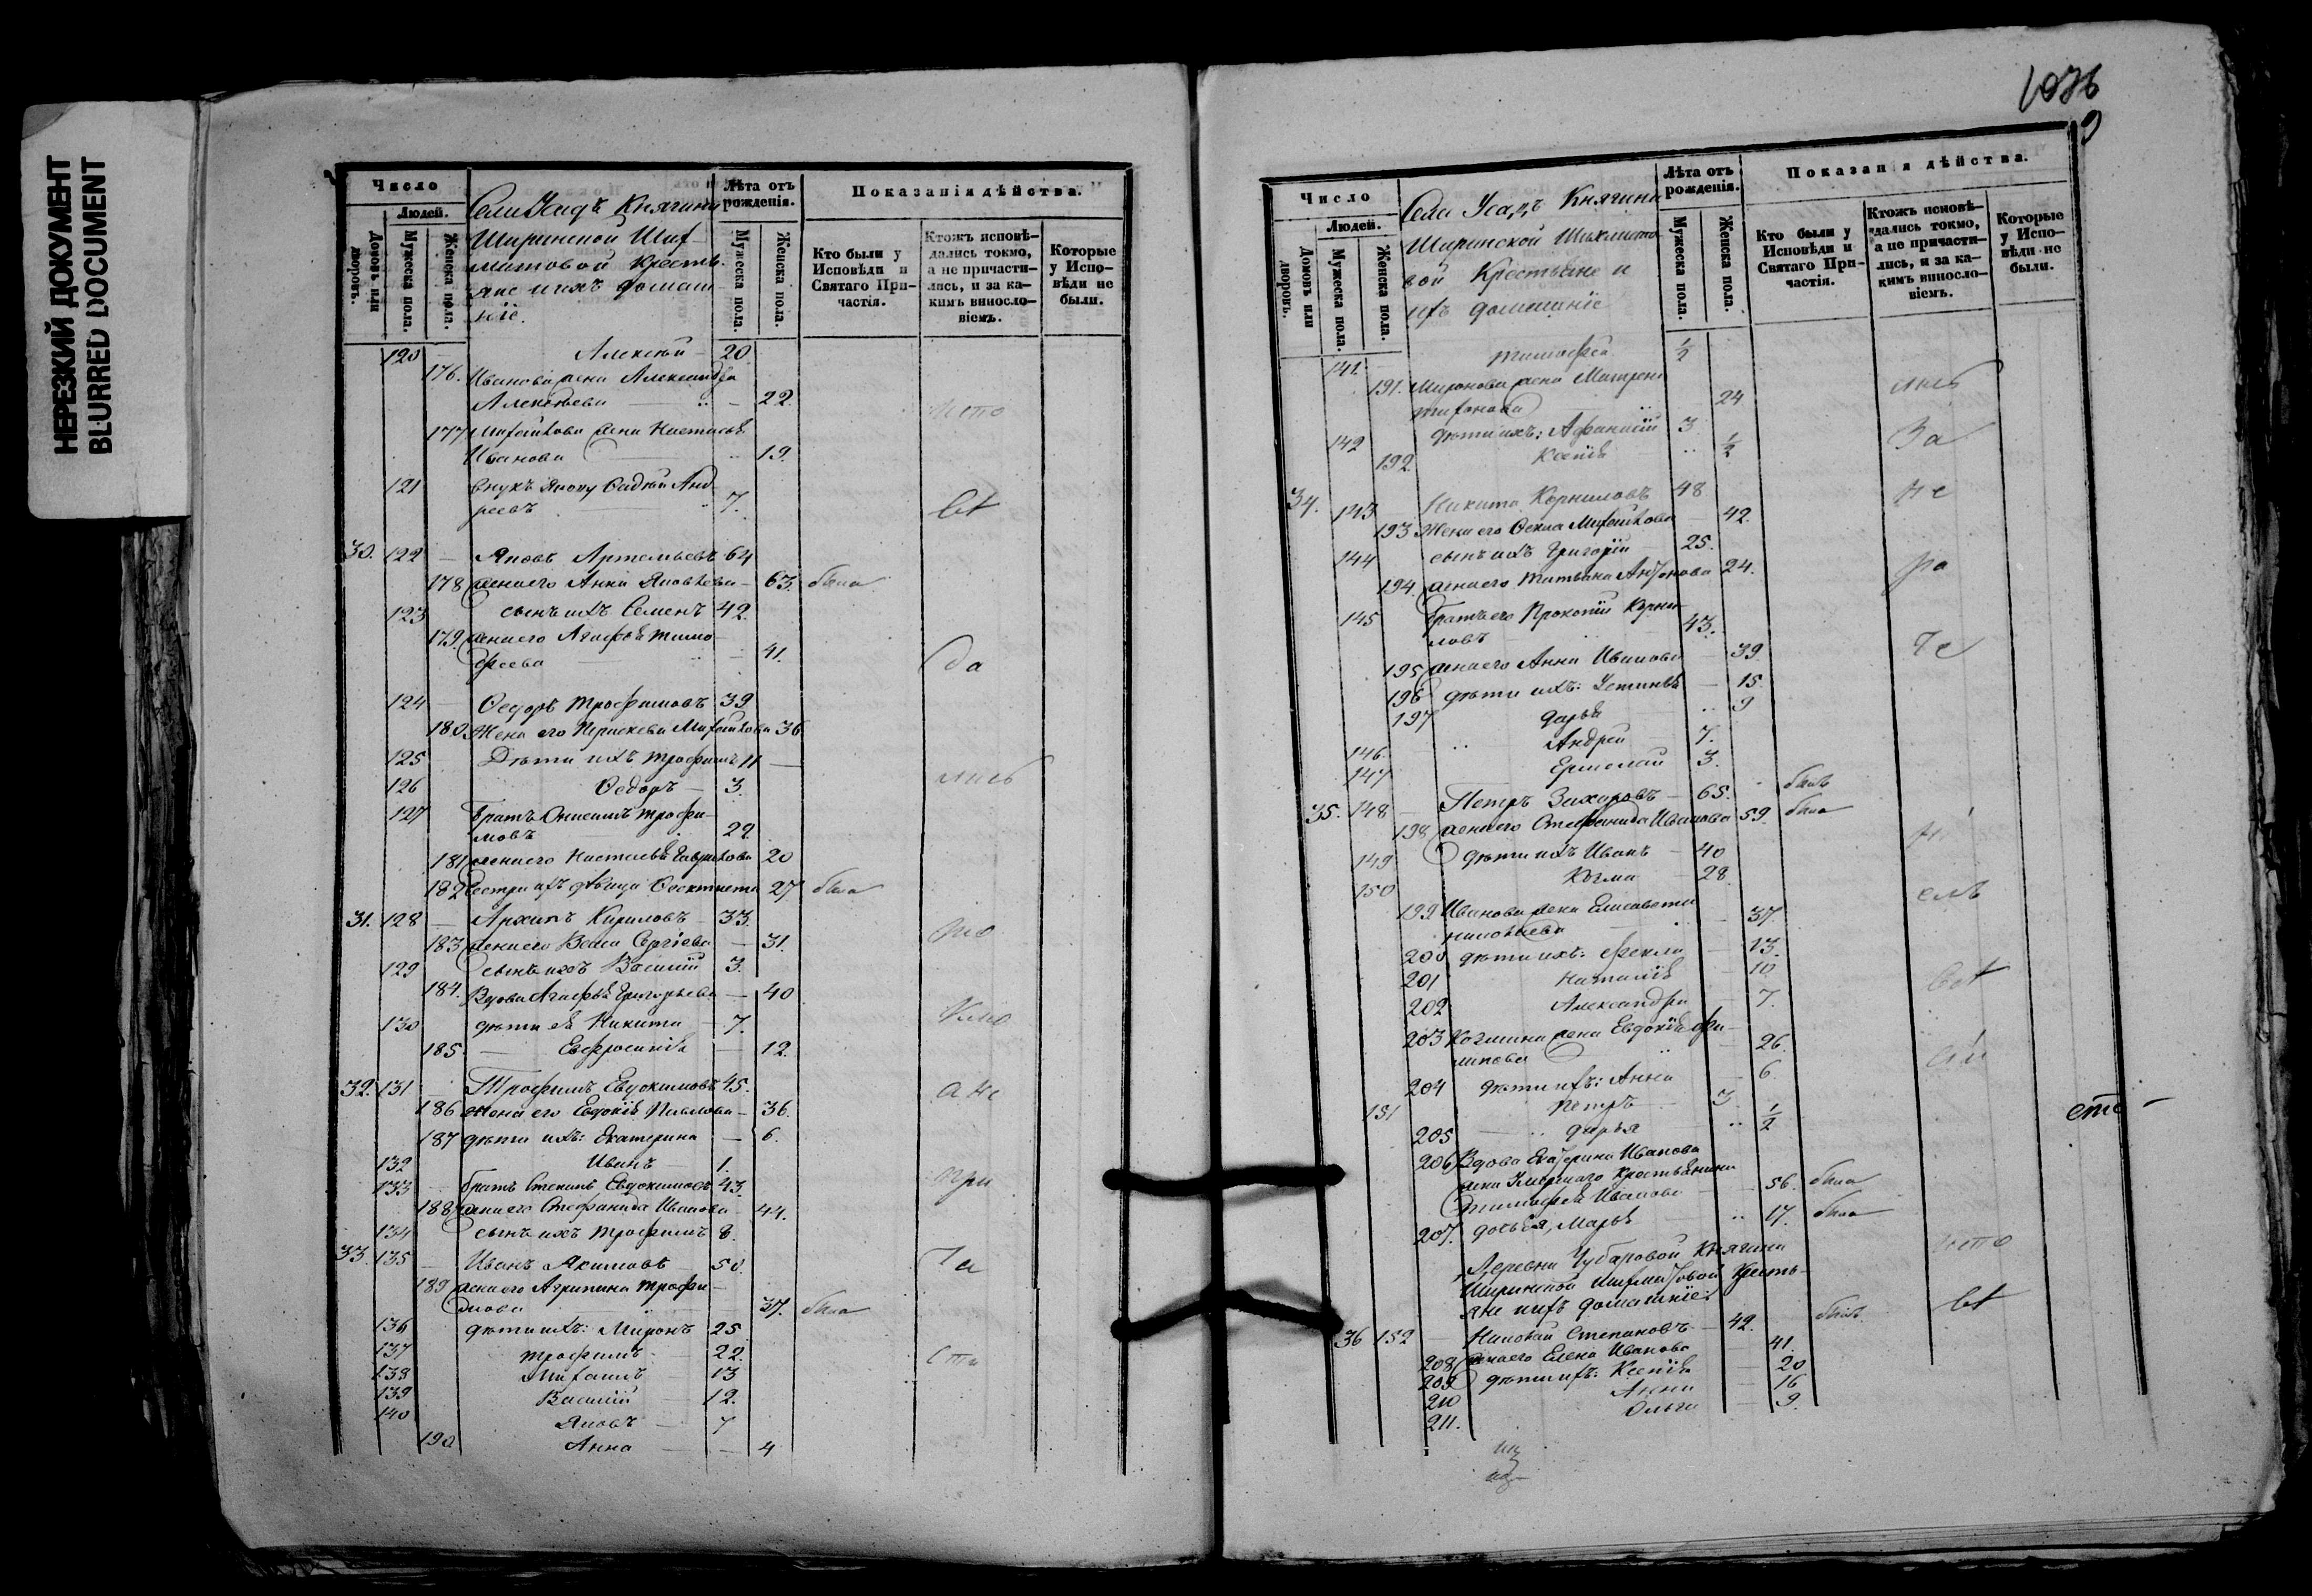 НЕРЕЗКИЙ ДОКУМЕНТ
BLURRED DOCUMENT
Число
Людей.
Домовъ или дворовъ.
Мужеска пола.
Женска пола.
Села Усадъ Княгини
Ширинской Ших-
матовой Кресть-
яне и ихъ домаш
ніе.
Лѣта отъ рожденія.
Мужеска пола.
Женска пола.
Показанія дѣйства.
Кто были у Исповѣди и Святаго При-частія.
Ктожъ исповѣ-дались токмо, а не причасти-лись, и за ка-кимъ виносло-віемъ.
Которые у Испо-вѣди не были.
120 — Алексѣй — 20
176. Иванова жена Александра
Алексѣева — 22.
177 Михайлова жена Настасья
Иванова — 19.
121 внукъ Якову Андреевъ 7.
30. 122 — Яковъ Артемьевъ 64
178 жена его Анна Яковлева — 63. была
123 сынъ ихъ Семенъ 42.
179. жена его Агафья Тимо
феева — 41.
124 — Ѳедоръ Трофимовъ 39
180 Жена его Прасковья Михайлова 36
125 Дѣти ихъ Трофимъ 11 —
126 Ѳедоръ — 3.
127 Братъ Онисимъ Трофи-
мовъ 22.
181 жена его Настасья Гаврилова 20
182 сестра ихъ дѣвица Ѳеоктиста 27 была
31. 128 — Архипъ Кириловъ 33.
183 жена его Васса Сергіева — 31.
129 сынъ ихъ Василій 3.
184. Вдова Агафья Григорьева — 40
130 дѣти ея Никита — 7.
185. — Евфросинія — 12.
32. 131 — Трофимъ Евдокимовъ 45.
186 жена его Евдокія Павлова — 36.
187 дѣти ихъ: Екатерина — 6.
132 Иванъ — 1.
133 братъ Степанъ Евдокимовъ 43.
188 жена его Стефанида Иванова — 44.
134 сынъ ихъ Трофимъ 8.
33. 135 — Иванъ Якимовъ — 50.
189 жена его Агрипина Трофи-
мова — 37. была
136 дѣти ихъ: Миронъ 25
137 Трофимъ 22.
138 Михаилъ — 13
139 Василій — 12.
140 Яковъ — 7
190 Анна — — 4
1076
9
Число
Людей.
Домовъ или дворовъ.
Мужеска пола.
Женска пола.
Села Усадъ Княгини
Ширинской Шихмато
вой Крестьяне и
ихъ домашніе
Лѣта отъ рожденія.
Мужеска пола.
Женска пола.
Показанія дѣйства.
Кто были у Исповѣди и Святаго При-частія.
Ктожъ исповѣ-дались токмо, а не причасти-лись, и за ка-кимъ виносло-віемъ.
Которые у Испо-вѣди не были.
141. Тимофей ½
191. Миронова жена Матрена
Тихонова 24
142 дѣти ихъ: Афанасій 3
192. Ксенія ½
34. 143 — Никита Корниловъ 48
193 Жена его Ѳекла Михайлова — 42.
144 сынъ ихъ Григорій 25.
194. жена его Татьяна Антонова 24.
145 Братъ его Прокопій Корни-
ловъ 43.
195 жена его Анна Иванова — 39
196 дѣти ихъ: Устинья — 15
197 Дарья 9
146. Андрей — 7.
147 Ермолай 3.
35. 148 — Петръ Захаровъ — 65. былъ
198 жена его Стефанида Иванова 59. была
149 дѣти ихъ Иванъ — 40
150 Козма — 28.
199 Иванова жена Елисавета
Николаева — 37.
200 дѣти ихъ: Фекла — 13.
201 Наталія — 10
202 Александра — 7.
203 Козмина жена Евдокія Фи-
липова — 26.
204 дѣти ихъ: Анна — 6.
151 Петръ — 3
205 — Дарья ½
206 Вдова Екатерина Иванова
жена Умершаго Крестьянина
Тимофея Иванова — 56. была
207. дочь ея, Марья 17. была
Деревни Чубаровой Княгини
Ширинской Шихматовой Кресть-
яне и ихъ домашніе:
36 152 — Николай Степановъ — 42. былъ
208 жена его Елена Иванова — 41.
209 дѣти ихъ: Ксенія — 20
210 Анна — 16
211. Ольга — 9.